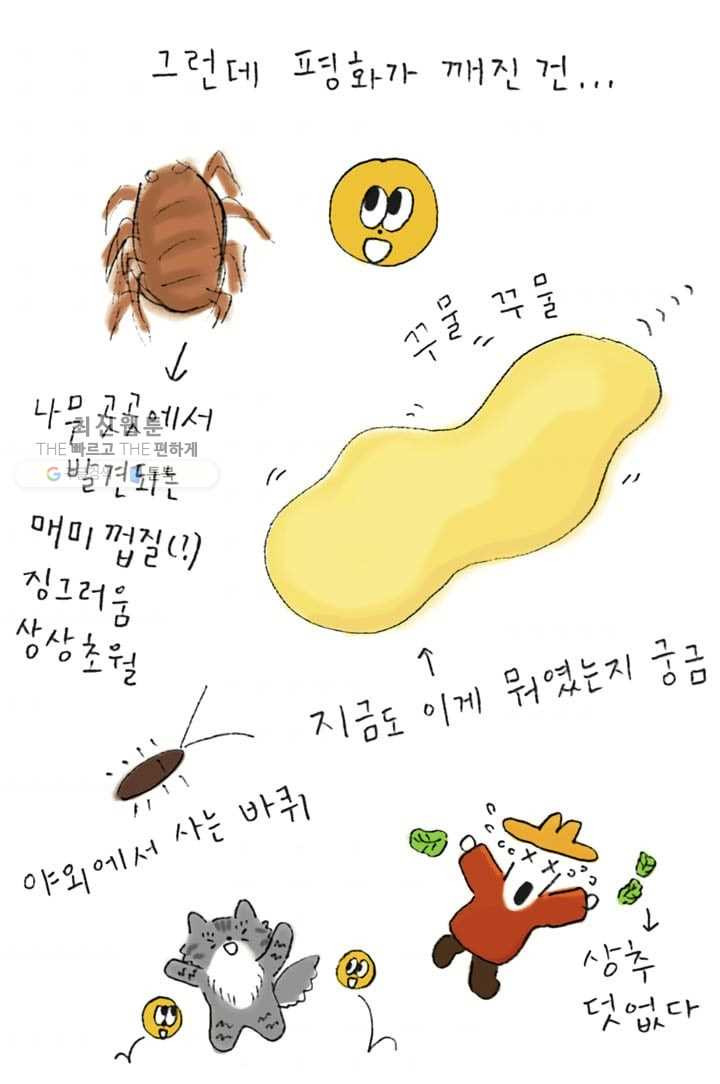 그런데 평화가 깨진 건...
꾸물 꾸물
나무 곳곳에서
발견되는
매미 껍질(?)
징그러움
상상초월
최신웹툰
THE 빠르고 THE 편하게
지금도 이게 뭐였는지 궁금
야외에서 사는 바퀴
상추
덧없다